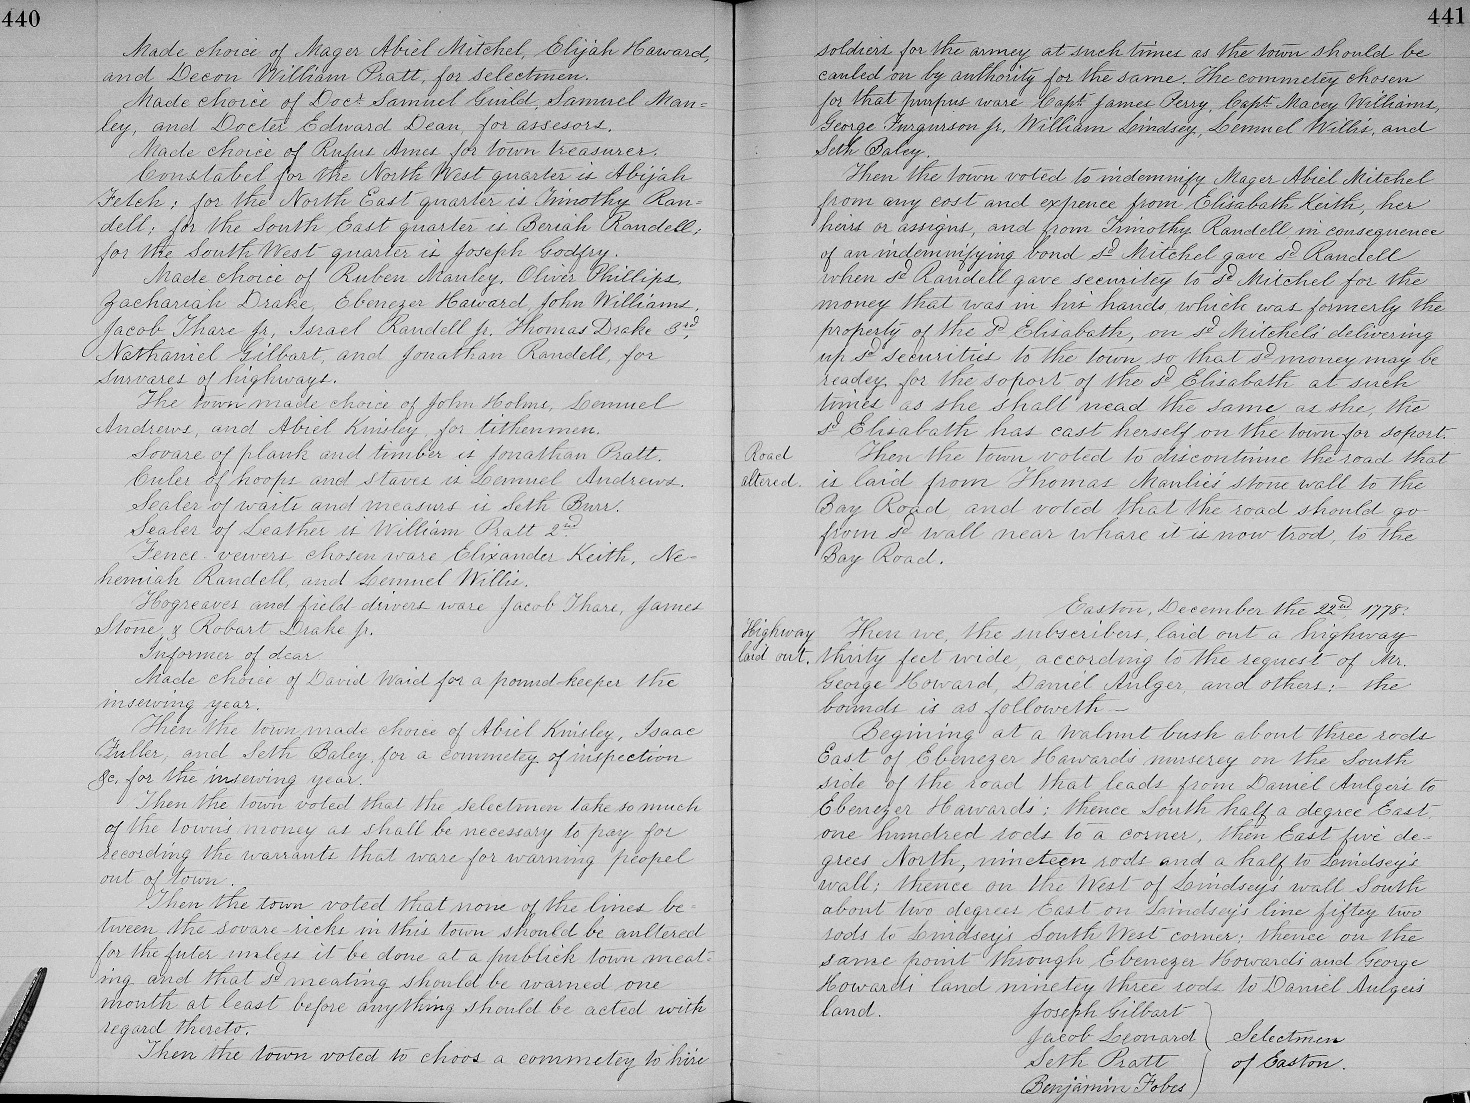 440
Made choice of Mager Abiel Mitchel, Elijah Haward,
and Decon William Pratt, for selectmen.
Made choice of Doct. Samuel Guild, Samuel Man=
ley, and Docter Edward Dean, for assesors.
Made choice of Rufus Ames for town treasurer.
Constabel for the North West quarter is Abijah
Fetch; for the North East quarter is Timothy Ran=
dell; for the South East quarter is Beriah Randell;
for the South West quarter is Joseph Godfry.
Made choice of Ruben Manley, Oliver Phillips,
Zachariah Drake, Ebenezer Haward, John Williams,
Jacob Thare jr, Israel Randell jr, Thomas Drake 3rd,
Nathaniel Gilbart, and Jonathan Randell, for
survares of highways.
The town made choice of John Holms, Lemuel
Andrews, and Abiel Kinsley, for tithenmen.
Sovare of plank and timber is Jonathan Pratt.
Culer of hoops and staves is Lemuel Andrews.
Sealer of waits and measurs is Seth Burr.
Sealer of Leather is William Pratt 2nd.
Fence vewers chosen ware Elixander Keith, Ne=
hemiah Randell, and Lemuel Willis.
Hogreaves and field drivers ware Jacob Thare, James
Stone, & Robart Drake jr.
Informer of dear
Made choice of David Waid for a pound keeper the
insewing year.
Then the town made choice of Abiel Kinsley, Isaac
Fuller, and Seth Baley, for a commetey of inspection
&c, for the insewing year.
Then the town voted that the selectmen take so much
of the town's money as shall be necessary to pay for
recording the warrants that ware for warning peopel
out of town.
Then the town voted that none of the lines be=
tween the sovare-ricks in this town should be aultered
for the futer unless it be done at a publick town meat=
ing and that sd meating should be warned one
month at least before anything should be acted with
regard thereto.
Then the town voted to choos a commetey to hire
441
soldiers for the armey at such times as the town should be
cauled on by authority for the same. The commetey chosen
for that purpus ware Capt. James Perry, Capt. Macey Williams,
George Furgurson jr, William Lindsey, Lemuel Willis, and
Seth Baley.
Then the town voted to indemnify Mager Abiel Mitchel
from any cost and expence from Elisabath Keith, her
heirs or assigns, and from Timothy Randell in consequence
of an indemnifying bond sd Mitchel gave sd Randell
when sd Randell gave securitey to sd Mitchel for the
money that was in his hands which was formerly the
property of the sd Elisabath, on sd Mitchel's delivering
up sd securities to the town, so that sd money may be
readey for the soport of the sd Elisabath at such
times as she shall nead the same, as she, the
sd Elisabath has cast herself on the town for soport.
Road
altered.
Then the town voted to discontinue the road that
is laid from Thomas Manlie's stone wall to the
Bay Road and voted that the road should go
from sd wall near whare it is now trod, to the
Bay Road.
Easton, December the 22nd, 1778.
Highway
laid out.
Then we, the subscribers, laid out a highway
thirty feet wide, according to the request of Mr.
George Howard, Daniel Aulger, and others:- the
bounds is as followeth—
Begining at a walnut bush about three rods
East of Ebenezer Haward's nursery on the South
side of the road that leads from Daniel Aulger's to
Ebenezer Haward's; thence South half a degree East,
one hundred rods to a corner, then East five de=
grees North, nineteen rods and a half to Lindsey's
wall; thence on the West of Lindsey's wall South
about two degrees East on Lindsey's line fiftey two
rods to Lindsey's South West corner; thence on the
same point through Ebenezer Howard's and George
Howard's land ninetey three rods to Daniel Aulger's
land.
Joseph Gilbart
Jacob Leonard
Seth Pratt
Benjamin Fobes
Selectmen
of Easton.